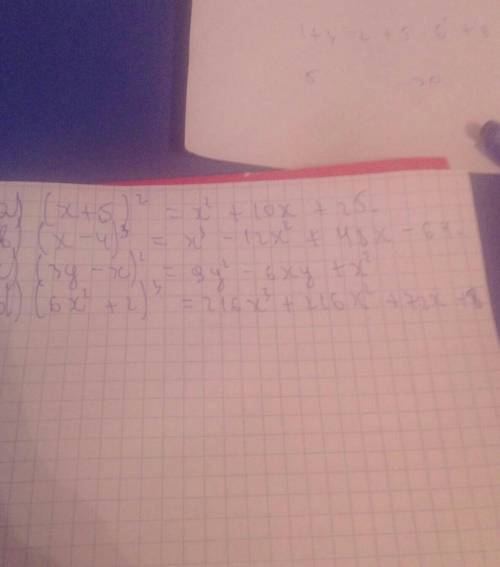 1+3
a) (x+5)² = x² + 10x + 25.
b) (x-4)³ = x³ - 12x² + 48x - 64.
c) (3y - x)² = 9y² - 6xy + x²
d) (6x² + 2)³ = 216x³ + 216x² + 72x + 8